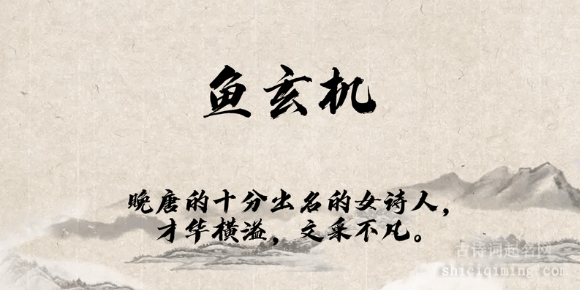 鱼玄机
晚唐的十分出名的女诗人，
才华横溢，文采不凡。
古诗词起名网
shiciqiming.com